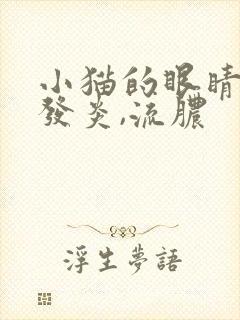 小猫的眼睛
發炎,流膿
浮生夢語